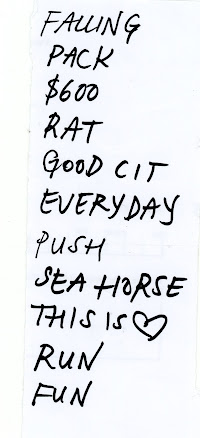 FALLING
PACK
$600
RAT
GOOD CIT
EVERYDAY
PUSH
SEA HORSE
THIS IS ♡
RUN
FUN